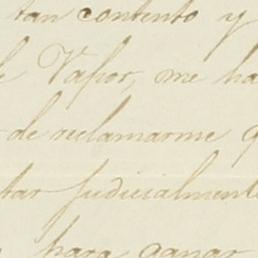 tan contento y
Vapor, me ha
de reclamarme
tar judicialmente
para ganar